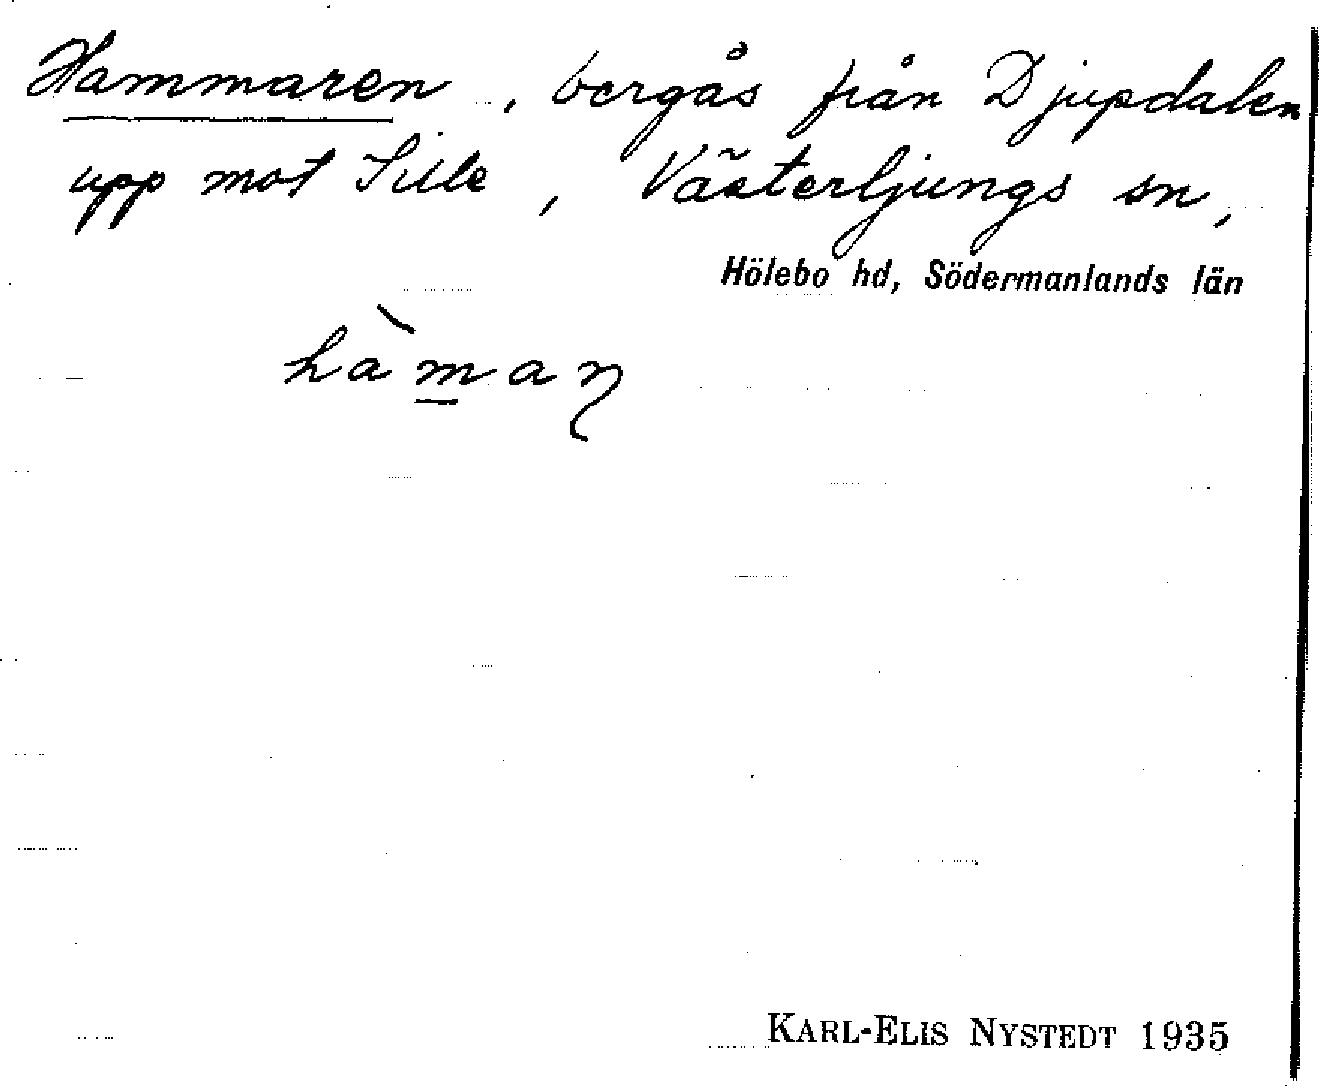 Hammaren, bergås från Djupdalen
upp mot Sille, Västerljungs sn,
Hölebo hd, Södermanlands län
hàm̲aη
KARL-ELIS NYSTEDT 1935